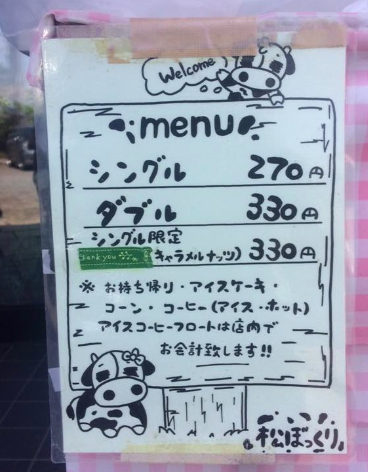 Welcome
menu
シングル 270円
ダブル 330円
シングル限定
thank you (キャラメルナッツ) 330円
※ お持ち帰り・アイスケーキ・
コーン・コーヒー(アイス・ホット)
アイスコーヒーフロートは店内で
お会計致します!!
松ぼっくり